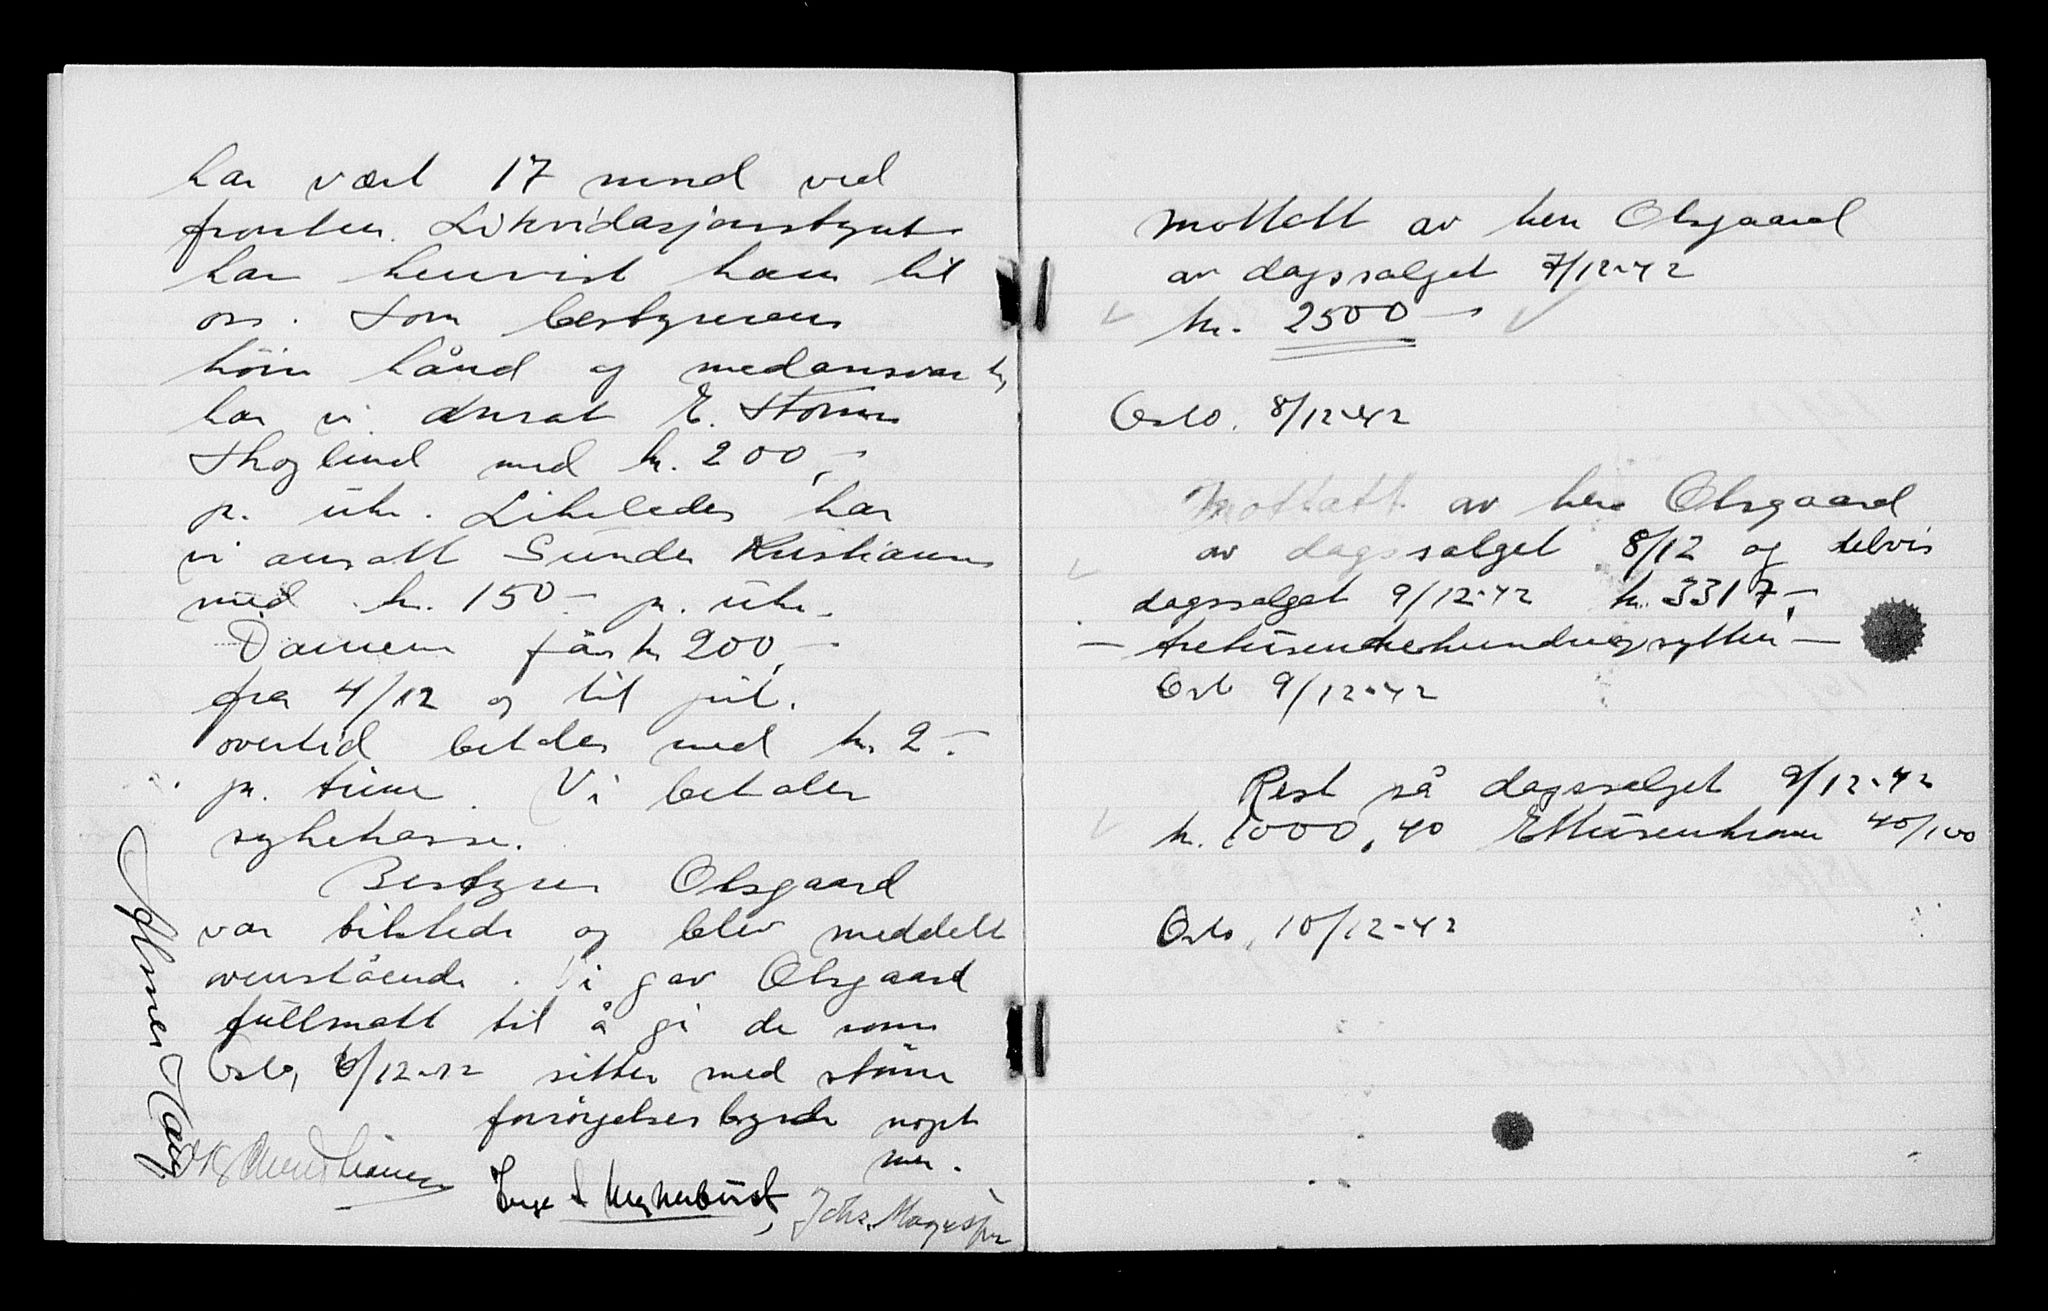 har vært 17 mnd ved
fronten. Likvidasjonsstyret
har henvist ham til
oss. Som bestyrerens
höire hånd og medansvarlig
har vi ansat E. Storm
Skoglund med kr. 200,-
pr. uke. Likeledes har
vi ansatt Sunde Kristiansen
med kr. 150.- pr. uke.
Damene får kr 200,-
fra 4/12 og til jul.
overtid betales med kr. 2.-
pr. time. Vi betaler
sykekasse.
Bestyrer Olsgaard
var tilstede og blev meddelt
ovenstående. Vi gav Olsgaard
fullmakt til å gi de som
Oslo, 6/12-42 sitter med större
forsörgelsesbyrde noget
mer.
Johs. Magnesen
mottatt av herr Olsgaard
av dagssalget 7/12-42
kr. 2500-
Oslo. 8/12-42
Mottatt av herr Olsgaard
av dagssalget 8/12 og delvis
dagssalget 9/12-42 kr. 3317,-
- tretusentrehundreogsytten -
Oslo 9/12-42
Rest på dagssalget 9/12-42
kr. 1000,40 Ettusenkroner 40/100
Oslo, 10/12-42